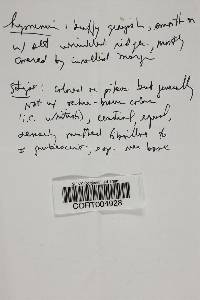 hymenium: buffy grayish, smooth or
w/ slt wrinkled ridges, mostly
covered by inrolled margin
stipe: colored as pileus but generally
not w/ brown color
(i.e. whitish), central, equal,
densely matted fibrillose to
± pubescent, esp. near base
CORT001928